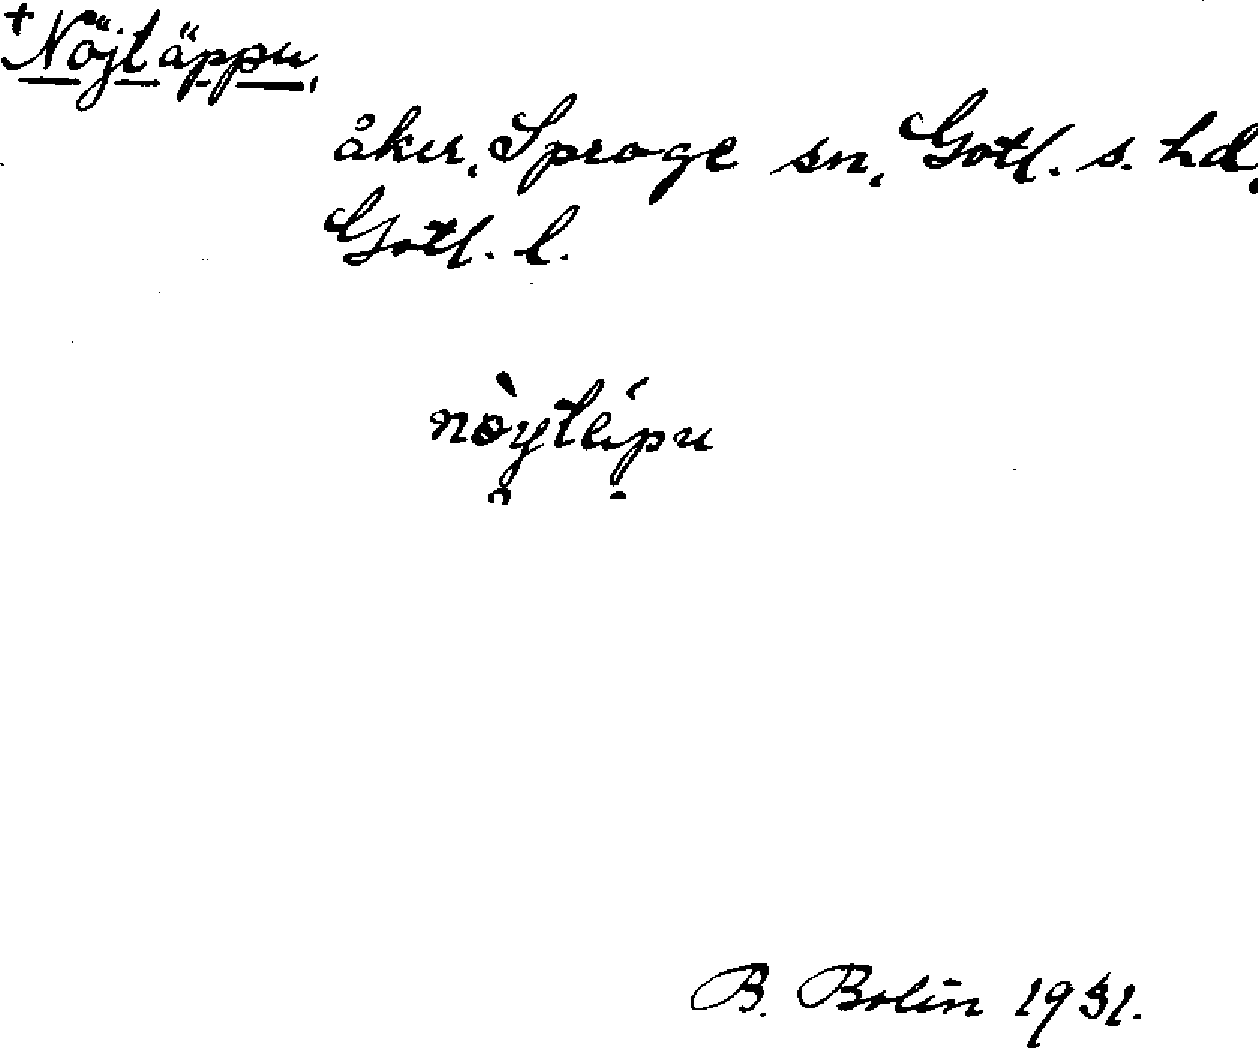 +Nöjtäppu,
åker, Sproge sn, Gotl. s. hd,
Gotl. l.
B. Bolin 1931.